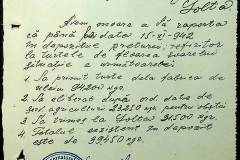 Golta
Avem onoare a vă raporta
că până la data 15-XI-942
în depozitul gretunei, referitor
la turtele de floarea soarelui
situația e următoarea:
1. Sa primit turte dela fabrica de
uleiu 94200 kgr.
2. Sa eliberat după ord. dato de
serv. agricultură 3250 kgr. pentru obștii
3. Sa trimes la Golta 21500 kgr.
4. Totalul existent în depozit
este de 39450 kgr.